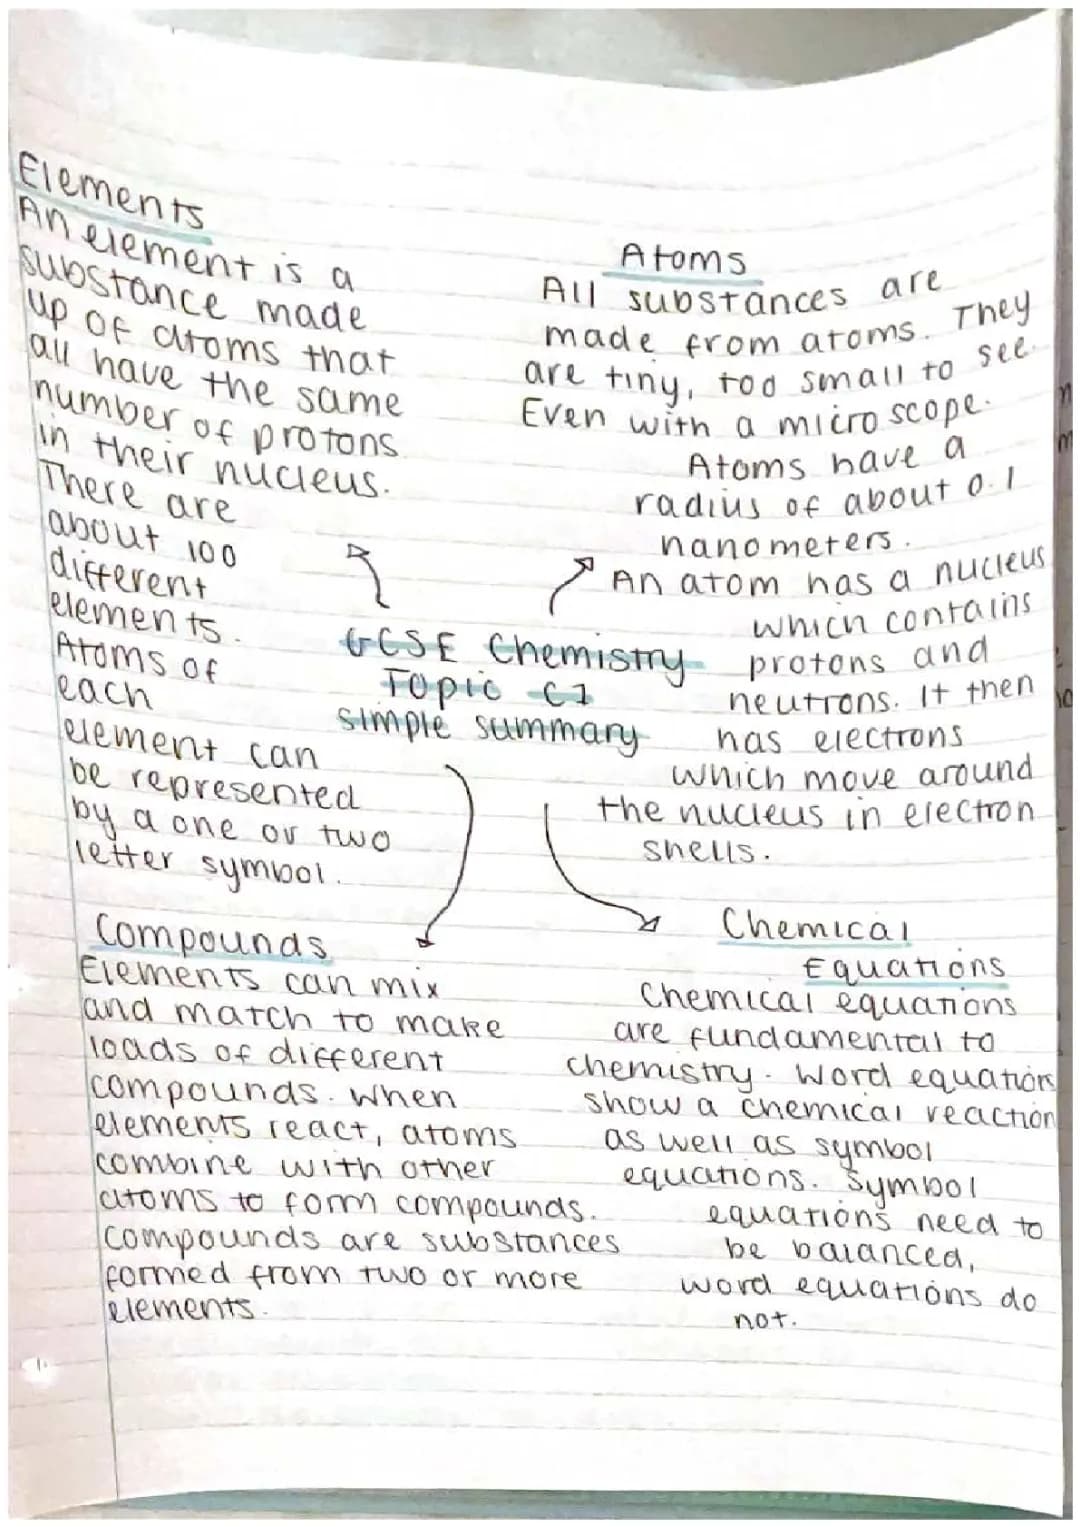 Elements
An element is a
substance made
up of atoms that
all have the same
number of protons
in their nucleus.
There are
about 100
different
elements.
Atoms of
each
element can
be represented
by a one or two
letter symbol.
Atoms
All substances are
made from atoms. They
are tiny, too small to see.
Even with a microscope.
Atoms have a
radius of about 0.1
nanometers.
An atom has a nucleus
which contains
protons and
neutrons. It then
has electrons
which move around
the nucleus in electron
shells.
GCSE Chemistry
Topic C1
simple summary
Compounds
Elements can mix
and match to make
loads of different
compounds. When
elements react, atoms
combine with other
atoms to form compounds.
Compounds are substances
formed from two or more
elements.
Chemical
Equations
Chemical equations
are fundamental to
chemistry. Word equations
show a chemical reaction
as well as symbol
equations. Symbol
equations need to
be balanced,
word equations do
not.